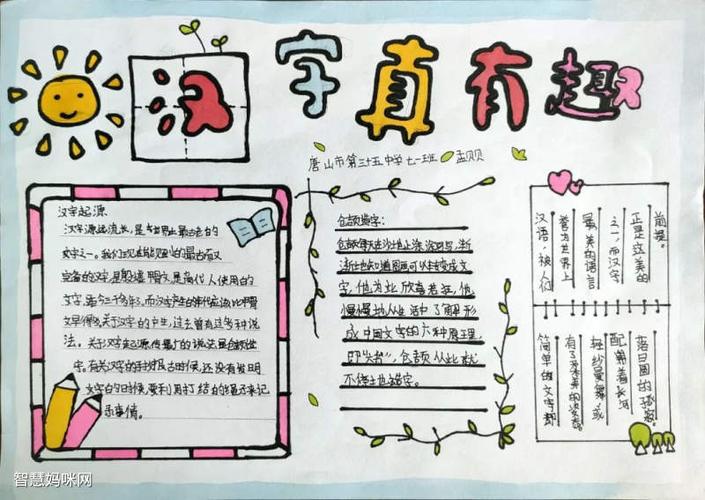 汉字真有趣
唐山市第三十五中学七一班 孟贝贝
汉字起源
汉字源起流长,是世界上最古老的
文字之一。我们现在能见到的最古而又
完备的汉字,是殷墟甲骨文,是商代人使用的
文字,距今三千多年,而汉字产生的年代应该比甲骨
文早得多。关于汉字的产生,过去曾有过多种说
法。关于汉字起源,传最广的说法是仓颉造
字。有关汉字的上古时候,还没有发明
文字的时候,要利用打结的绳子来记
录事情。
仓颉造字:
仓颉每天在沙地上涂涂写写,渐
渐他知道图画可以转变成文
字,他为此欣喜若狂,他
慢慢地从生活中了解形
成中国文字的六种原理,
即"六书",仓颉从此就
不停地造字。
前提。
正是立美的
之一,而汉字
最美的语言
誉为世界上
汉语,被人们
落日圆的孤寂。
配着长河
轻纱曼舞,或
有了柔美的姿态。
简单的文字都
智慧妈咪网